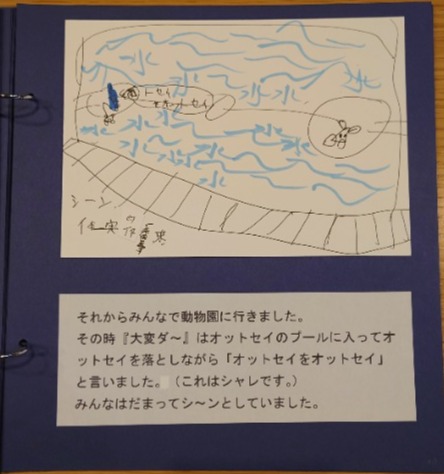 水
水 水
水
トセイ
オットセイ
水 水
水 水 水
水 水
水 水 水 水
水
シーン
それからみんなで動物園に行きました。
その時『大変ダ～』はオットセイのプールに入ってオ
ットセイを落としながら「オットセイをオットセイ」
と言いました。（これはシャレです。）
みんなはだまってシ～ンとしていました。